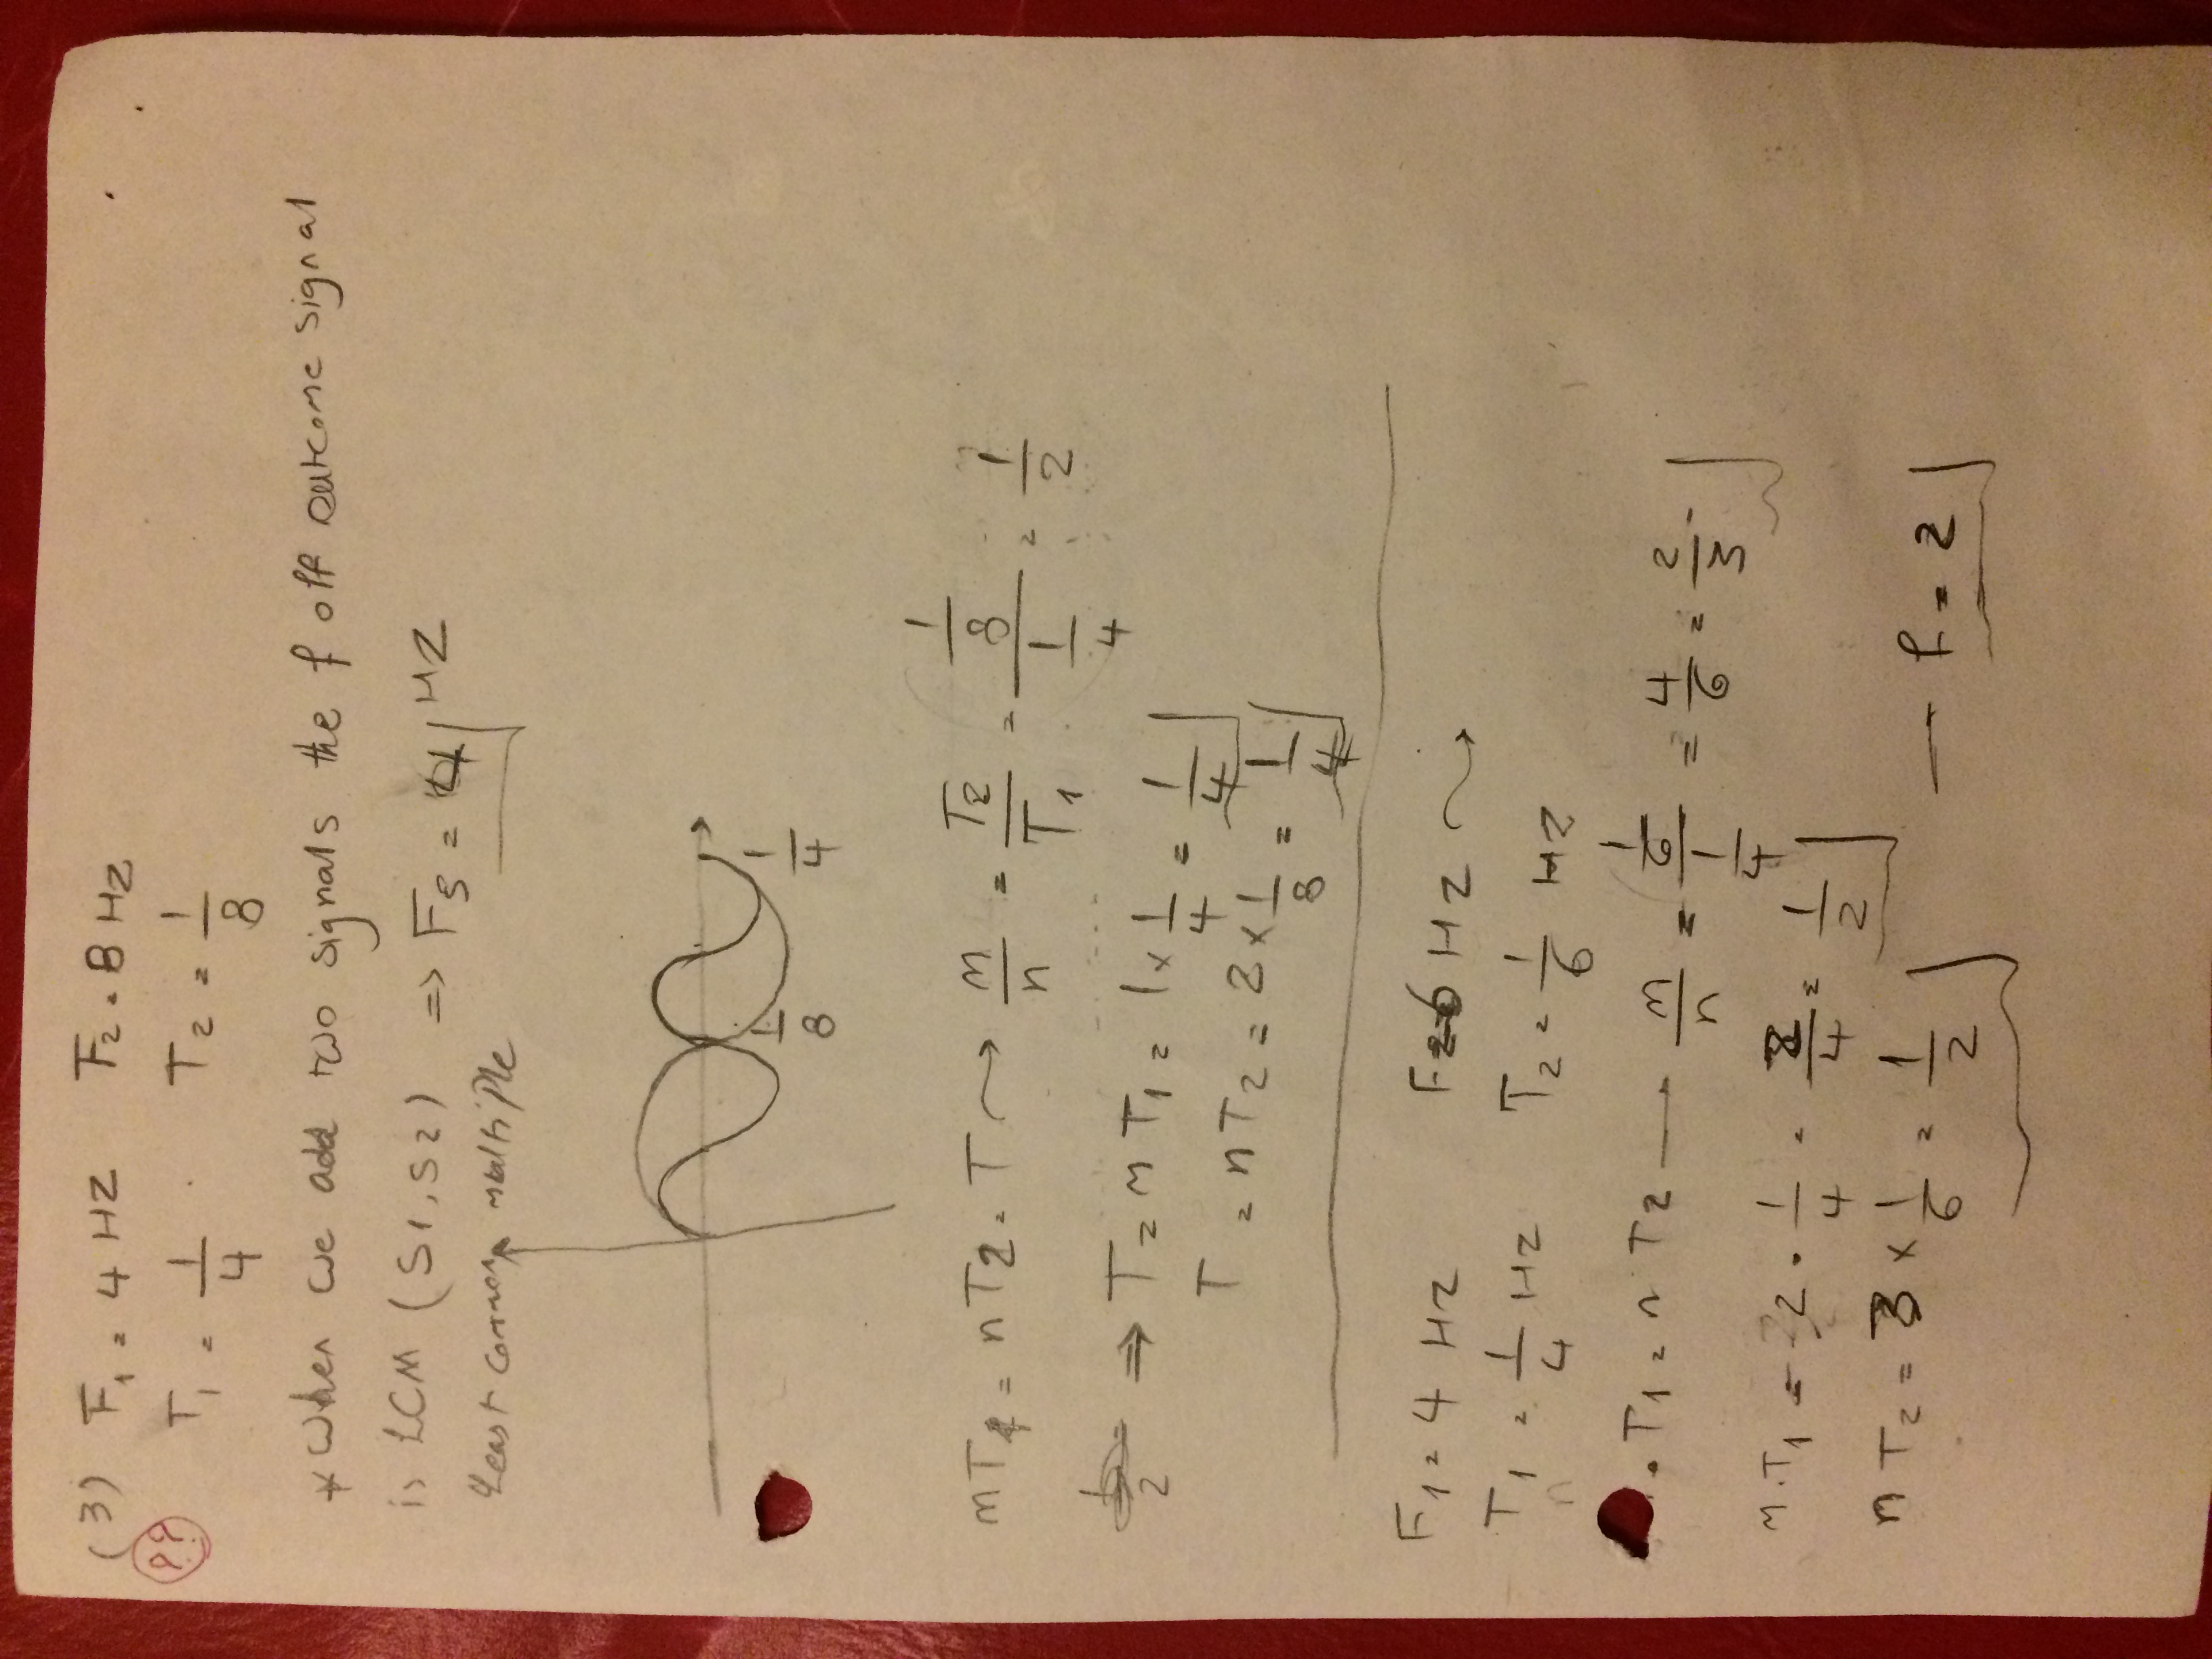 (3) F1 = 4 HZ F2 = 8 HZ
??
T1 = 1/4 T2 = 1/8
* When we add two signals the f off outcome signal
is LCM (S1, S2) => Fs = 4 HZ
Least common multiple
1/8 1/4
mT1 = nT2 = T → m/n = T2/T1 = (1/8)/(1/4) = 1/2
⇒ T = m T1 = 1 x 1/4 = 1/4
T = nT2 = 2 x 1/8 = 1/4
F1 = 4 HZ F2 = 6 HZ →
T1 = 1/4 HZ T2 = 1/6 HZ
. T1 = n T2 — m/n = (1/6)/(1/4) = 4/6 = 2/3
m.T1 = 2 . 1/4 = 2/4 = 1/2
n T2 = 3 x 1/6 = 1/2 — f = 2